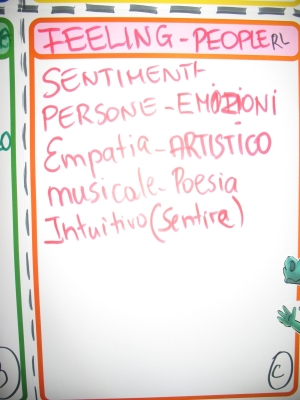 FEELING-PEOPLE RL
SENTIMENTI
PERSONE-EMOZIONI
Empatia-ARTISTICO
musicale-Poesia
Intuitivo (Sentire)
C